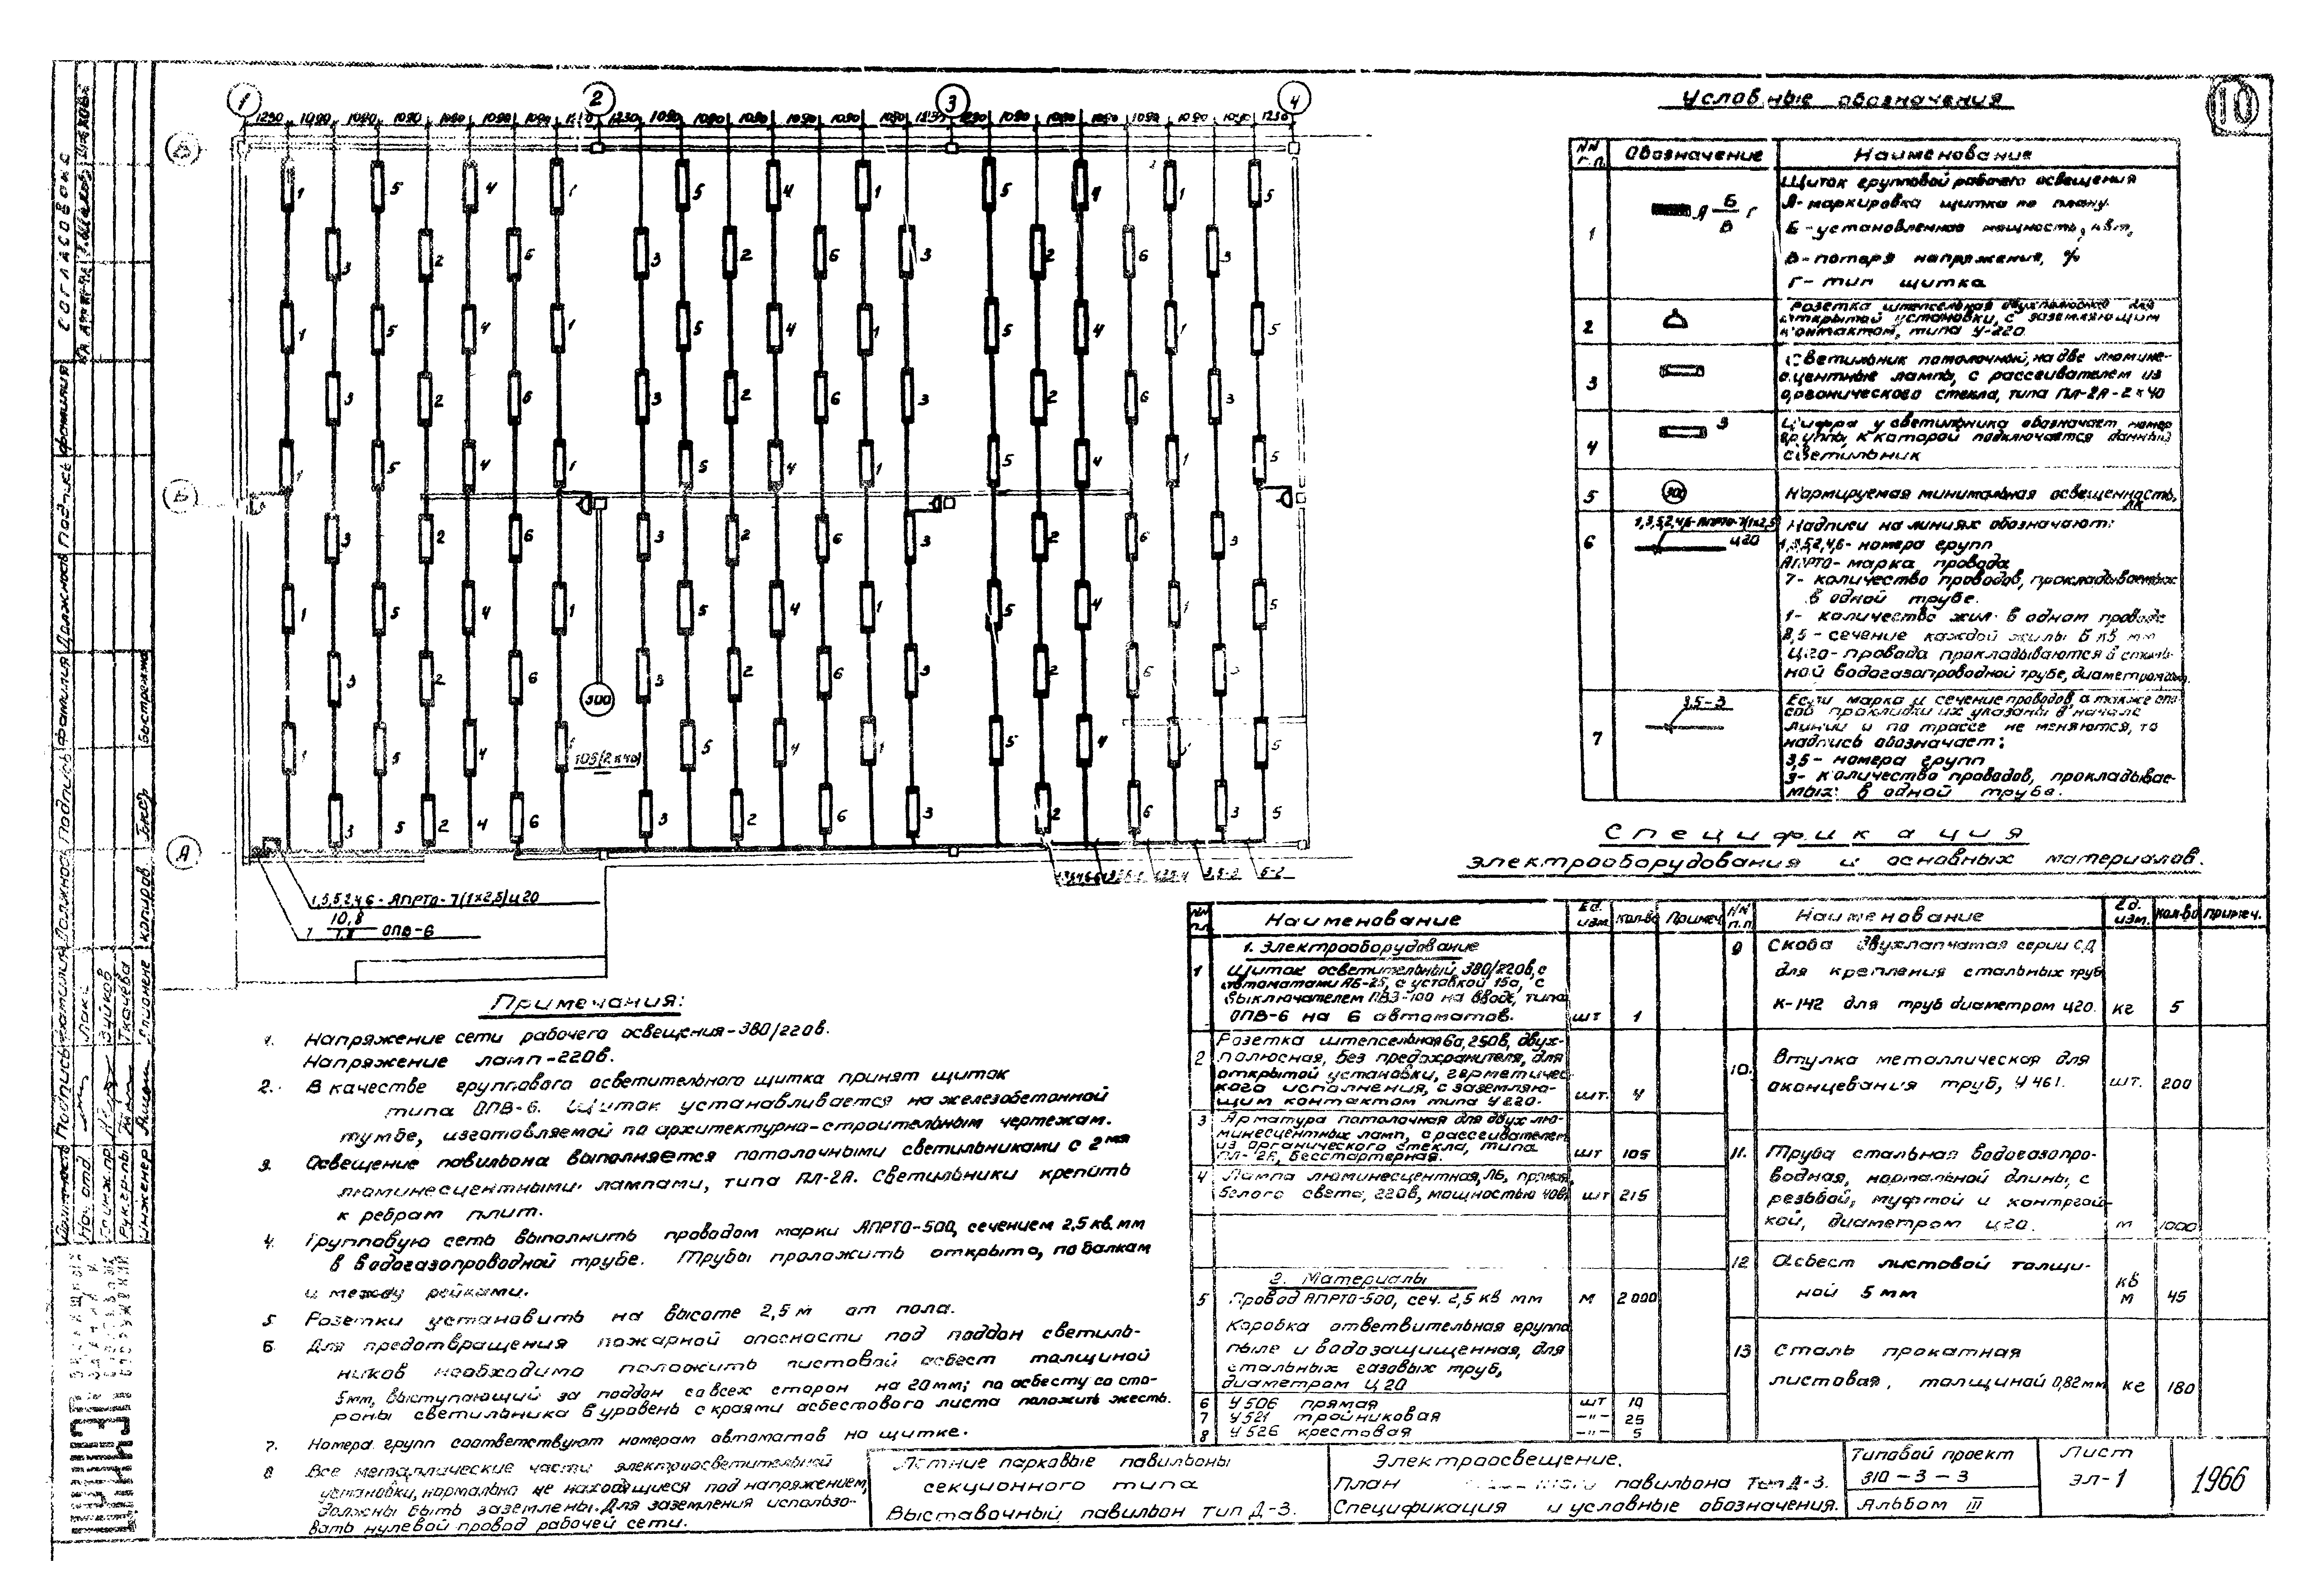 10
1 2 3 4
1230 1090 1090 1090 1090 1090 1090
1230 1090 1090 1090 1090 1090 1090 1230
1090 1090 1090 1090 1090 1090 1230
Б
А
300
105(2x40)
1,3,5,2,4,6 - АПРТО - 7(1x2,5) ц20
10,8
ОПВ-6
3,5-3 5-2
Условные обозначения
NN п.п. Обозначение Наименование
1 А Б/В Г
Щиток групповой рабочего освещения
А - маркировка щитка по плану.
Б - установленная мощность, квт,
В - потеря напряжения, %
Г - тип щитка
2 Розетка штепсельная двухполюсная для
открытой установки, с заземляющим
контактом, типа У-220
3 Светильник потолочный, на две люмине-
сцентные лампы, с рассеивателем из
органического стекла, типа ПЛ-2А-2x40
4 3 Цифра у светильника обозначает номер
группы к которой подключается данный
светильник
5 300 Нормируемая минимальная освещенность,
лк
6 1,3,5,2,4,6-АПРТО-7(1x2,5) ц20 Надписи на линиях обозначают:
1,3,5,2,4,6 - номера групп
АПРТО - марка провода
7 - количество проводов, прокладываемых
в одной трубе.
1 - количество жил в одном проводе
2,5 - сечение каждой жилы в кв мм
Ц20 - провода прокладываются в сталь-
ной водогазопроводной трубе, диаметром
7 3,5-3 Если марка и сечение проводов, а также спо-
соб прокладки их указаны в начале
линии и по трассе не меняются, то
надпись обозначает:
3,5 - номера групп
3 - количество проводов, прокладывае-
мых в одной трубе.
Спецификация
электрооборудования и основных материалов.
NN п.п. Наименование Ед. изм. Кол-во Примеч.
1. Электрооборудование
1 Щиток осветительный, 380/220в, с
автоматами АБ-25, с уставкой 15а, с
выключателем ПВ3-100 на вводе, типа
ОПВ-6 на 6 автоматов. шт 1
2 Розетка штепсельная 6а, 250в, двух-
полюсная, без предохранителя, для
открытой установки, герметичес-
кого исполнения, с заземляю-
щим контактом типа У220. шт. 4
3 Арматура потолочная для двух лю-
минесцентных ламп, с рассеивателем
из органического стекла, типа
ПЛ-2Б, бесстартерная. шт 105
4 Лампа люминесцентная, ЛБ, прямая,
белого света, 220в, мощностью 40вт шт 215
2. Материалы
5 Провод АПРТО-500, сеч. 2,5 кв мм м 2000
Коробка ответвительная группа
пыле и водозащищенная, для
стальных газовых труб,
диаметром ц20
6 У506 прямая шт 19
7 У521 тройниковая -"- 25
8 У526 крестовая -"- 5
NN п.п. Наименование Ед. изм. Кол-во Примеч.
9 Скоба двухлапчатая серии СД
для крепления стальных труб
К-142 для труб диаметром ц20. кг 5
10. Втулка металлическая для
оконцевания труб, У461. шт. 200
11. Труба стальная водогазопро-
водная, нормальной длины, с
резьбой, муфтой и контргай-
кой, диаметром ц20. м 1000
12 Асбест листовой толщи-
ной 5мм кв м 45
13 Сталь прокатная
листовая, толщиной 0,82мм кг 180
Примечания:
1. Напряжение сети рабочего освещения - 380/220в.
Напряжение ламп - 220в.
2. В качестве группового осветительного щитка принят щиток
типа ОПВ-6. Щиток устанавливается на железобетонной
тумбе, изготовляемой по архитектурно-строительным чертежам.
3. Освещение павильона выполняется потолочными светильниками с 2мя
люминесцентными лампами, типа ПЛ-2А. Светильники крепить
к ребрам плит.
4. Групповую сеть выполнить проводом марки АПРТО-500, сечением 2,5 кв. мм
в водогазопроводной трубе. Трубы проложить открыто, по балкам
и между рейками.
5 Розетки установить на высоте 2,5м от пола.
6. Для предотвращения пожарной опасности под поддон светиль-
ников необходимо положить листовой асбест толщиной
5мм, выступающий за поддон со всех сторон на 20мм; по асбесту со сто-
роны светильника в уровень с краями асбестового листа положить жесть.
7. Номера групп соответствуют номерам автоматов на щитке.
8 Все металлические части электроосветительной
установки, нормально не находящиеся под напряжением,
должны быть заземлены. Для заземления использо-
вать нулевой провод рабочей сети.
Летние парковые павильоны
секционного типа
Выставочный павильон тип Д-3.
Электроосвещение.
План павильона Тип Д-3.
Спецификация и условные обозначения.
Типовой проект
310-3-3
Альбом III
Лист
эл-1
1966
СОГЛАСОВОКС
Должность Подпись Фамилия
Нач. отд.
Рук. гр-пы Ткачева
Инженер
Копиров.
Быстрежо